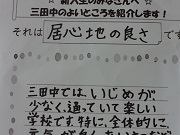 ☆新入生のみなさんへ☆
三田中のよいところを紹介します!
それは 居心地の良さ です
三田中では、いじめが
少なく、通っていて楽しい
学校です。特に、全体的に